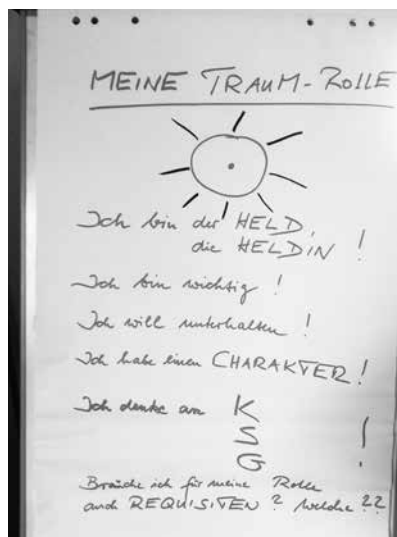 MEINE TRAUM-ROLLE
Ich bin der HELD,
die HELDIN !
Ich bin wichtig !
Ich will unterhalten !
Ich habe einen CHARAKTER !
Ich denke an K
S !
G
Brauche ich für meine Rolle
auch REQUISITEN ? Welche ??